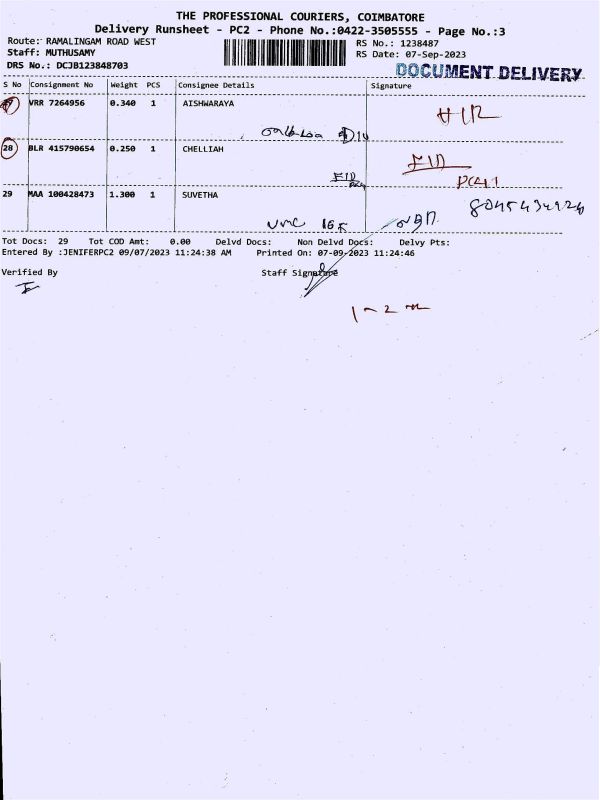 THE PROFESSIONAL COURIERS, COIMBATORE
Delivery Runsheet - PC2 - Phone No.:0422-3505555 - Page No.:3
Route: RAMALINGAM ROAD WEST
RS No.: 1238487
Staff: MUTHUSAMY
RS Date: 07-Sep-2023
DRS No.: DCJB123848703
DOCUMENT DELIVERY
S No Consignment No Weight PCS Consignee Details Signature
VRR 7264956 0.340 1 AISHWARAYA
28 BLR 415790654 0.250 1 CHELLIAH
29 MAA 100428473 1.300 1 SUVETHA
Tot Docs: 29 Tot COD Amt: 0.00 Delvd Docs: Non Delvd Docs: Delvy Pts:
Entered By :JENIFERPC2 09/07/2023 11:24:38 AM Printed On: 07-09-2023 11:24:46
Verified By Staff Signature